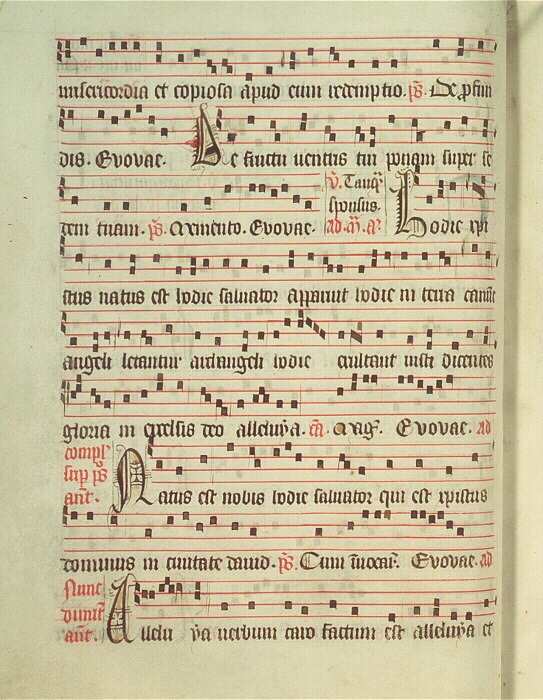 misericordia et copiosa apud eum redemptio. p̄s. De ꝓfun
dis. Evovae. De fructu ventris tui ponam super se
dem tuam. p̄s. Memento. Evovae. v̄. Tanq̄ sponsus. ad. m̄. a᷑. Hodie xpi
stus natus est hodie salvator apparuit hodie in terra canūt
angeli letantur archangeli hodie exultant iusti dicentes
gloria in excelsis deo alleluya. c̄a. Mag̅. Evovae. ad
compl' sup̱ p̄s
an̄t. Natus est nobis hodie salvator qui est xpistus
dominus in civitate david. p̄s. Cum īvocar̄. Evovae. ad
Nunc dimitt̄
an̄t. Allelu ya verbum caro factum est alleluya et